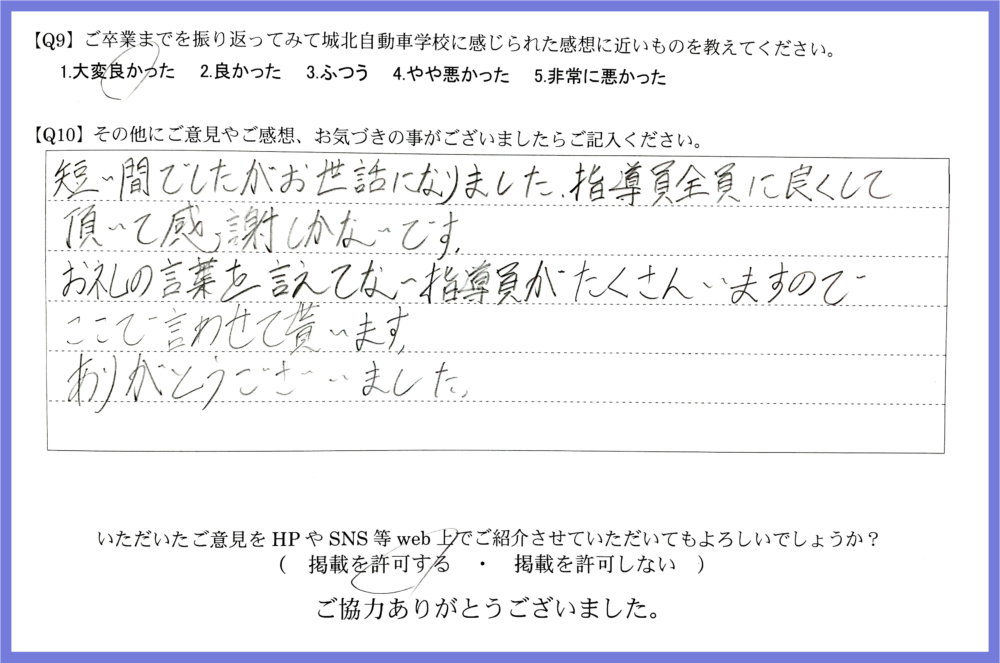 【Q9】ご卒業までを振り返ってみて城北自動車学校に感じられた感想に近いものを教えてください。
1.大変良かった 2.良かった 3.ふつう 4.やや悪かった 5.非常に悪かった
【Q10】その他にご意見やご感想、お気づきの事がございましたらご記入ください。
短い間でしたがお世話になりました。指導員全員に良くして
頂いて感謝しかないです。
お礼の言葉を言えてない指導員がたくさんいますので
ここで言わせて貰います。
ありがとうございました。
いただいたご意見をHPやSNS等web上でご紹介させていただいてもよろしいでしょうか？
( 掲載を許可する ・ 掲載を許可しない )
ご協力ありがとうございました。